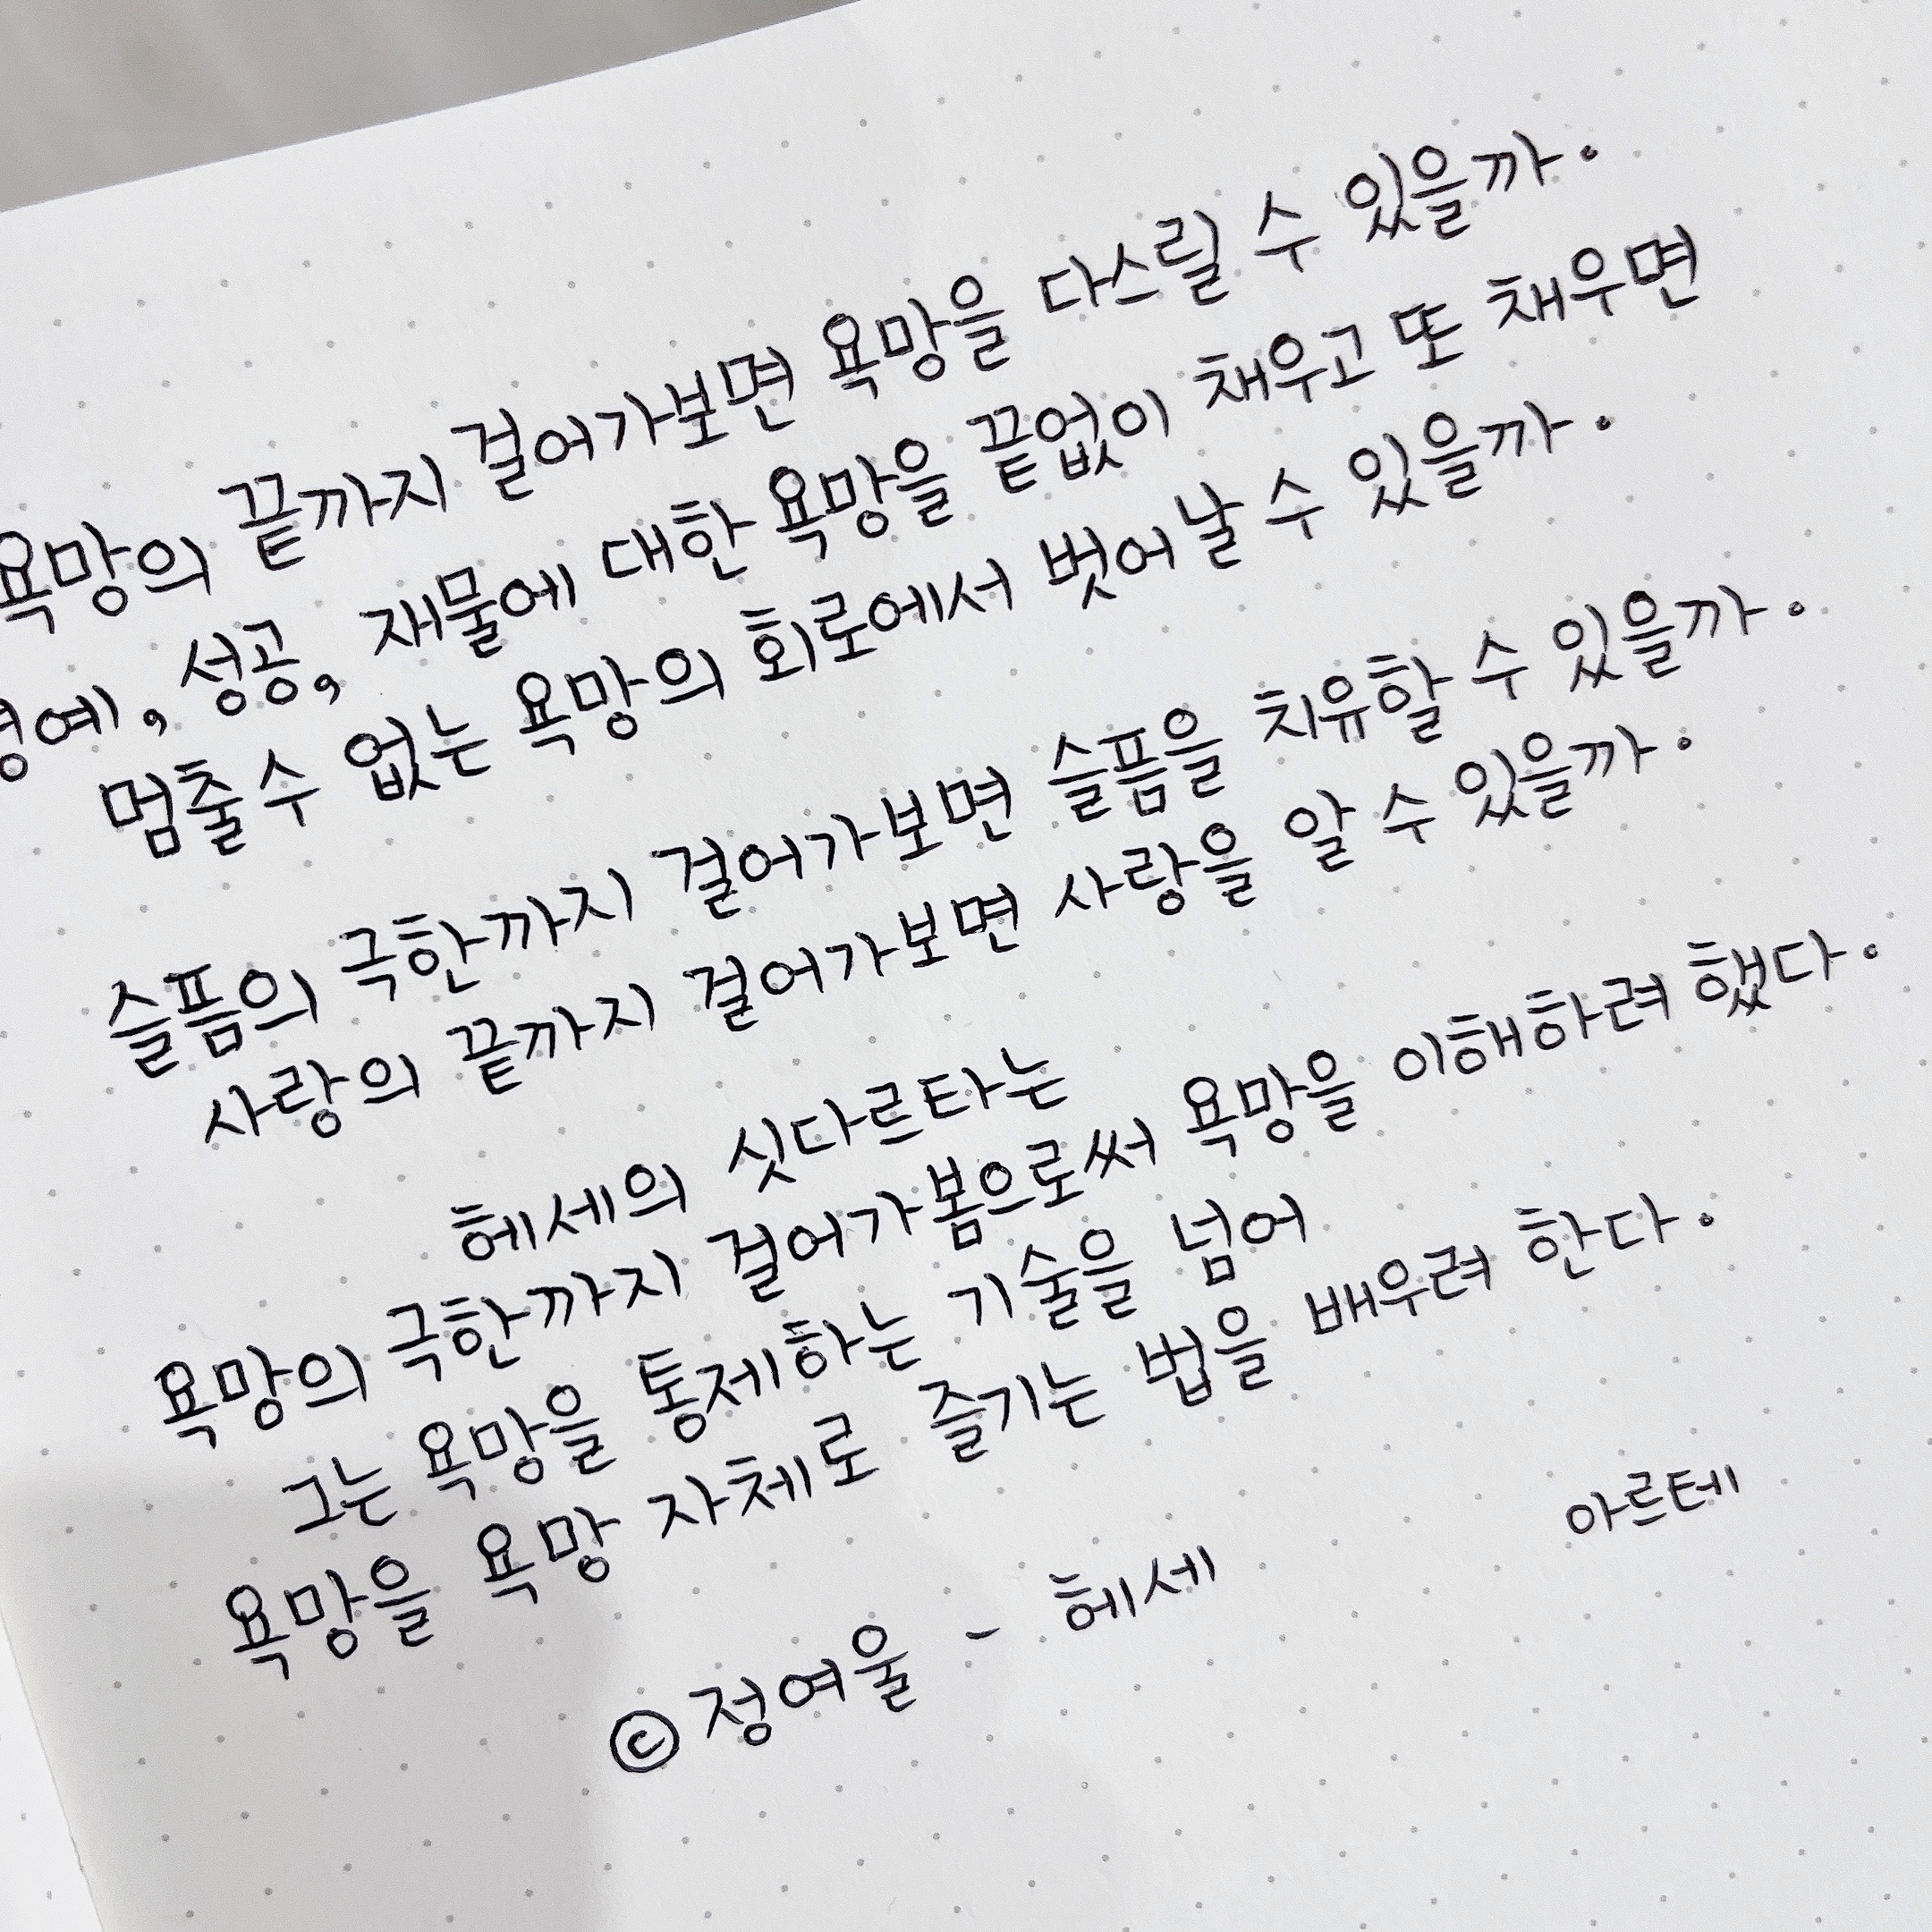 욕망의 끝까지 걸어가보면 욕망을 다스릴 수 있을까.
명예, 성공, 재물에 대한 욕망을 끝없이 채우고 또 채우면
멈출 수 없는 욕망의 회로에서 벗어날 수 있을까.
슬픔의 극한까지 걸어가보면 슬픔을 치유할 수 있을까.
사랑의 끝까지 걸어가보면 사랑을 알 수 있을까.
헤세의 싯다르타는
욕망의 극한까지 걸어가봄으로써 욕망을 이해하려 했다.
그는 욕망을 통제하는 기술을 넘어
욕망을 욕망 자체로 즐기는 법을 배우려 한다.
© 정여울 - 헤세 아르테